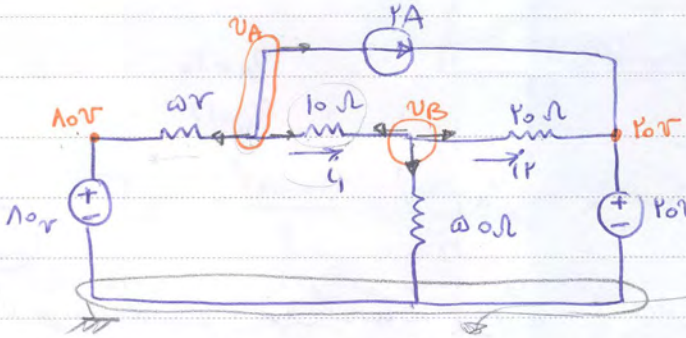 VA ۲A
۸۰V ۵V ۱۰Ω VB ۲۰Ω ۲۰V
i₁ i۲
۸۰V ۵۰Ω ۲۰V